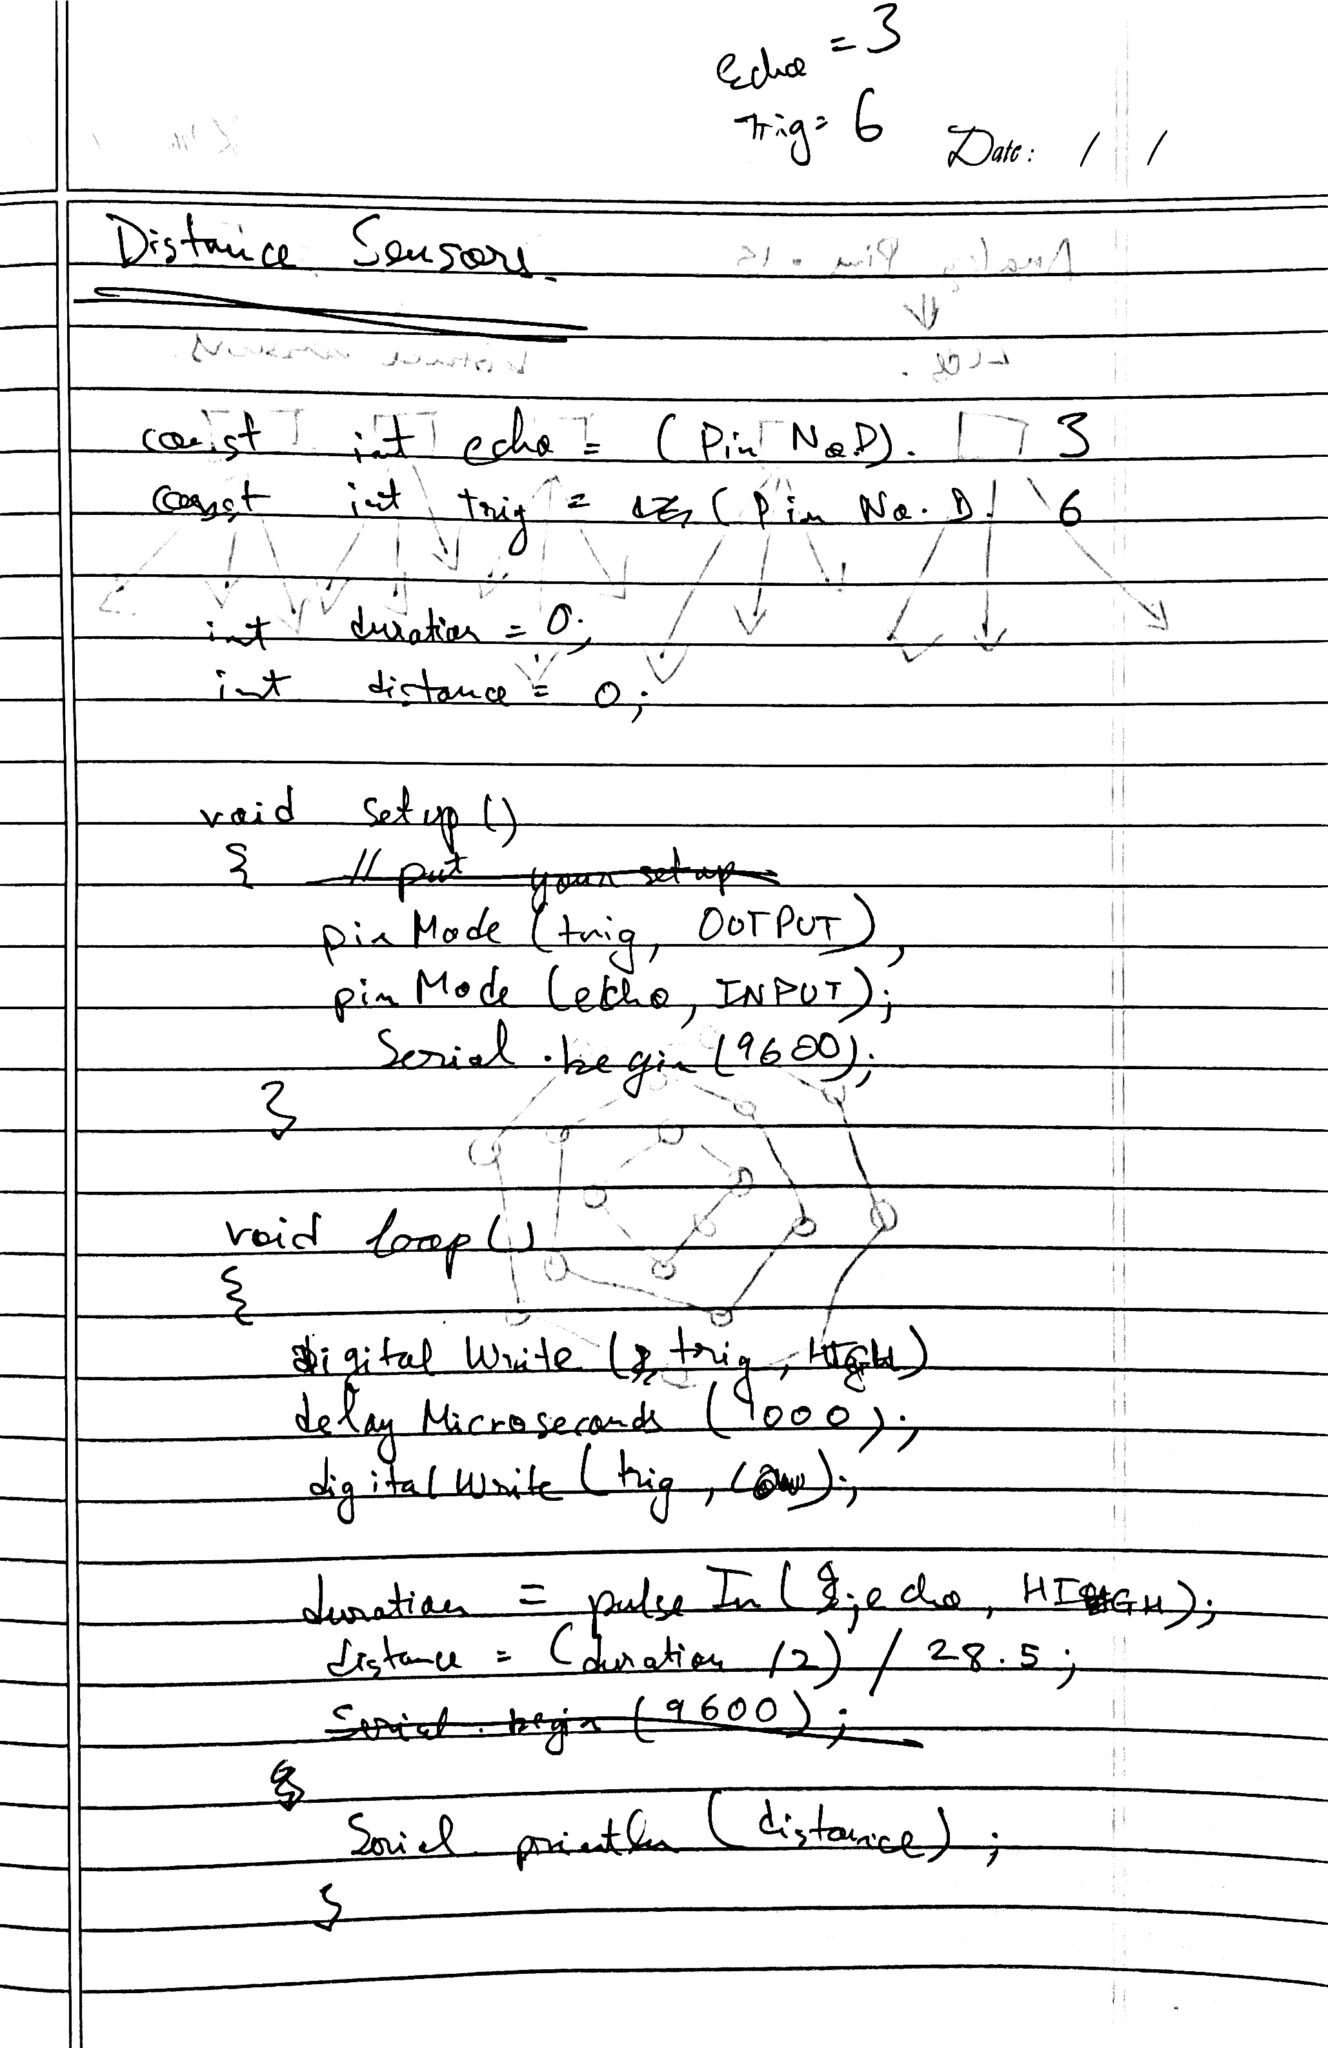 echo = 3
trig = 6
Date: / /
Distance Sensors.
const int echo = (Pin No.D). 3
const int trig = (Pin No. D. 6
int duration = 0;
int distance = 0;
void setup()
{ // put your setup
pinMode (trig, OUTPUT),
pinMode (echo, INPUT);
Serial.begin (9600);
}
void loop()
{
digital Write ( trig, HIGH)
delay Microseconds (1000);
digital Write (trig, low);
duration = pulse In ( echo, HIGH);
distance = (duration /2) / 28.5;
Serial.begin (9600);
Serial.println (distance);
}